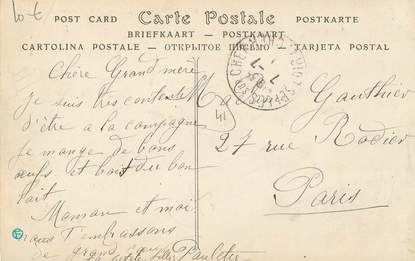 POST CARD Carte Postale POSTKARTE
BRIEFKAART — POSTKAART
CARTOLINA POSTALE — ОТКРЫТОЕ ПИСЬМО — TARJETA POSTAL
Chère Grand mère
Je suis très contente
d'être a la campagne
Je mange de bons
oeufs et bois du bon
lait
Maman et moi
vous t'embrassons
de grand cœur
petite fille Paulette
41
Gauthier
27 rue Rodier
Paris